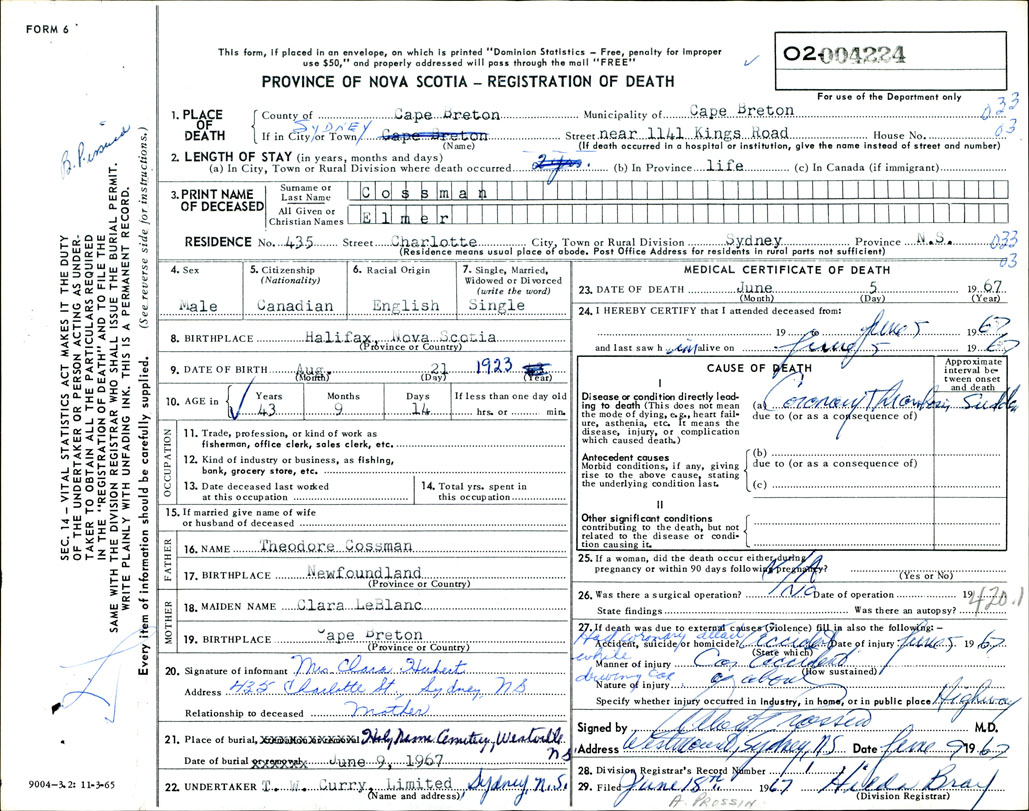 FORM 6
This form, if placed in an envelope, on which is printed "Dominion Statistics – Free, penalty for improper
use $50," and properly addressed will pass through the mail "FREE"
PROVINCE OF NOVA SCOTIA – REGISTRATION OF DEATH
02-004224
For use of the Department only
1. PLACE OF DEATH
County of Cape Breton Municipality of Cape Breton
033
03
SYDNEY
If in City/or Town Cape Breton Street near 1141 Kings Road House No.
(Name) (If death occurred in a hospital or institution, give the name instead of street and number)
2. LENGTH OF STAY (in years, months and days)
(a) In City, Town or Rural Division where death occurred 2 yrs. (b) In Province life (c) In Canada (if immigrant)
3. PRINT NAME OF DECEASED
Surname or Last Name Cossman
All Given or Christian Names Elmer
RESIDENCE No. 435 Street Charlotte City, Town or Rural Division Sydney Province N.S.
033
03
(Residence means usual place of abode. Post Office Address for residents in rural parts not sufficient)
4. Sex
Male
5. Citizenship
(Nationality)
Canadian
6. Racial Origin
English
7. Single, Married,
Widowed or Divorced
(write the word)
Single
8. BIRTHPLACE Halifax, Nova Scotia
(Province or Country)
9. DATE OF BIRTH Aug. 21 1923
(Month) (Day) (Year)
10. AGE in
Years Months Days If less than one day old
43 9 14 hrs. or min.
OCCUPATION
11. Trade, profession, or kind of work as
fisherman, office clerk, sales clerk, etc.
12. Kind of industry or business, as fishing,
bank, grocery store, etc.
13. Date deceased last worked
at this occupation
14. Total yrs. spent in
this occupation
15. If married give name of wife
or husband of deceased
FATHER
16. NAME Theodore Cossman
17. BIRTHPLACE Newfoundland
(Province or Country)
MOTHER
18. MAIDEN NAME Clara LeBlanc
19. BIRTHPLACE Cape Breton
(Province or Country)
20. Signature of informant Mrs. Clara Hubert
Address 435 Charlotte St., Sydney, NS
Relationship to deceased Mother
21. Place of burial, Holy Name Cemetery, Westville
NS
Date of burial June 9, 1967
22. UNDERTAKER T. W. Curry, Limited, Sydney, N.S.
(Name and address)
MEDICAL CERTIFICATE OF DEATH
23. DATE OF DEATH June 5 1967
(Month) (Day) (Year)
24. I HEREBY CERTIFY that I attended deceased from:
19 to June 5 1967
and last saw him alive on June 5 1967
CAUSE OF DEATH
Approximate
interval be-
tween onset
and death
I
Disease or condition directly lead-
ing to death (This does not mean
the mode of dying, e.g., heart fail-
ure, asthenia, etc. It means the
disease, injury, or complication
which caused death.)
(a) Coronary Thrombosis Sudden
due to (or as a consequence of)
Antecedent causes
Morbid conditions, if any, giving
rise to the above cause, stating
the underlying condition last.
(b)
due to (or as a consequence of)
(c)
II
Other significant conditions
contributing to the death, but not
related to the disease or condi-
tion causing it.
25. If a woman, did the death occur either during
pregnancy or within 90 days following pregnancy? N/A
(Yes or No)
26. Was there a surgical operation? No Date of operation 19
420.1
State findings Was there an autopsy?
27. If death was due to external causes (violence) fill in also the following: –
Had coronary attack
while
driving car
Accident, suicide or homicide? Accident Date of injury June 5 1967
(State which)
Manner of injury Car accident
(How sustained)
Nature of injury as above
Specify whether injury occurred in industry, in home, or in public place Highway
Signed by Albert Prossin M.D.
Address Westmount, Sydney, N.S. Date June 9 1967
28. Division Registrar's Record Number
29. Filed June 15th 1967 Hilda Bray
(Division Registrar)
A. PROSSIN
SEC. 14 – VITAL STATISTICS ACT MAKES IT THE DUTY
OF THE UNDERTAKER OR PERSON ACTING AS UNDER-
TAKER TO OBTAIN ALL THE PARTICULARS REQUIRED
IN THE "REGISTRATION OF DEATH" AND TO FILE THE
SAME WITH THE DIVISION REGISTRAR WHO SHALL ISSUE THE BURIAL PERMIT.
WRITE PLAINLY WITH UNFADING INK. THIS IS A PERMANENT RECORD.
Every item of information should be carefully supplied. (See reverse side for instructions.)
9004–3.2: 11-3-65